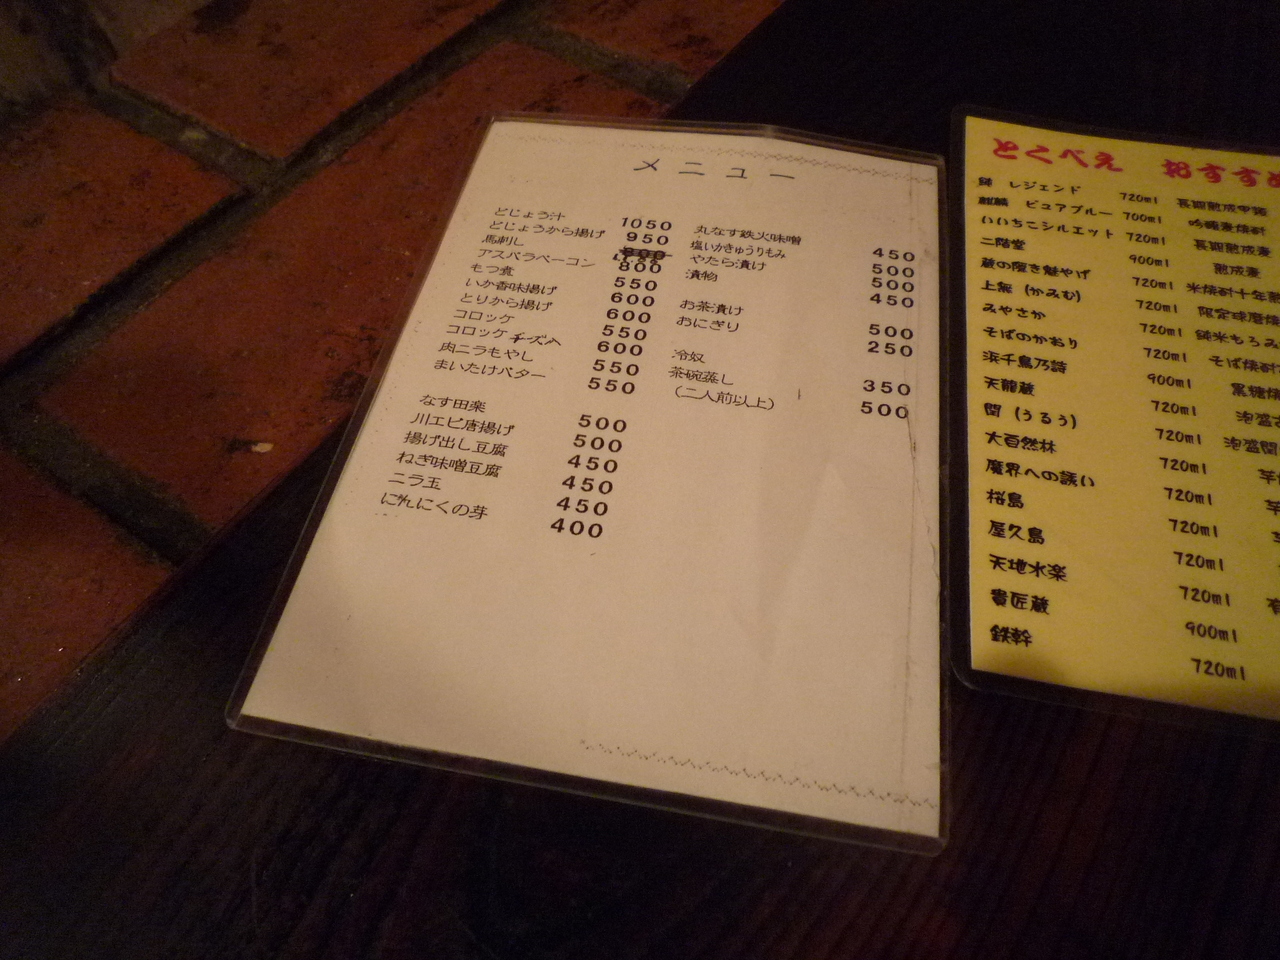 メニュー
どじょう汁 1050
どじょうから揚げ 950
馬刺し
アスパラベーコン 800
もつ煮 550
いか香味揚げ 600
とりから揚げ 600
コロッケ 550
コロッケチーズ入 600
肉ニラもやし 550
まいたけバター 550
なす田楽 500
川エビ唐揚げ 500
揚げ出し豆腐 450
ねぎ味噌豆腐 450
ニラ玉 450
にんにくの芽 400
丸なす鉄火味噌 450
塩いかきゅうりもみ 500
やたら漬け 500
漬物 450
お茶漬け 500
おにぎり 250
冷奴 350
茶碗蒸し 500
(二人前以上)
とくべえ おすすめ
レジェンド 720ml 長期熟成甲類
麒麟 ピュアブルー 700ml 吟醸麦焼酎
いいちこシルエット 720ml 長期熟成麦
二階堂 900ml 熟成麦
720ml 米焼酎十年
上無 (かみむ) 720ml 限定球磨焼
みやさか 720ml 純米もろみ
そばのかおり 720ml そば焼酎
浜千鳥乃詩 900ml 黒糖焼
天龍蔵 720ml 泡盛古
閏 (うるう) 720ml 泡盛閏
大百然林 720ml 芋
魔界への誘い 720ml 芋
桜島 720ml
屋久島 720ml
天地水楽 720ml
貴匠蔵 900ml
鉄幹 720ml